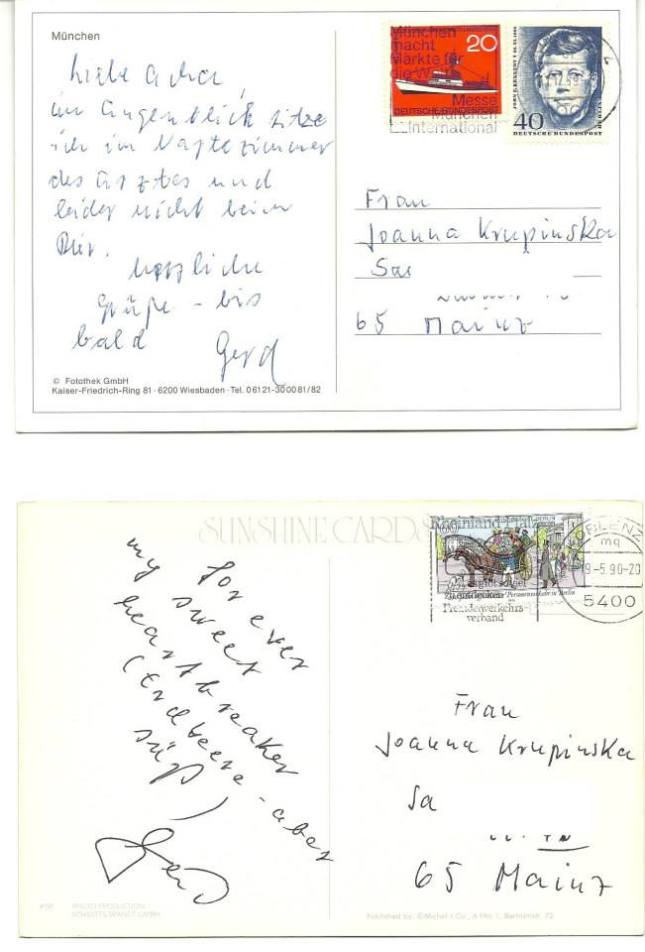 München
Liebe
im Augenblick sitze
ich im Wartezimmer
des Arztes und
leider nicht beim
Bier.
herzliche
Grüße - bis
bald Gerd
© Fotothek GmbH
Kaiser-Friedrich-Ring 81 · 6200 Wiesbaden · Tel. 06121-300081/82
München
macht
Märkte für
die Welt
20
Messe
DEUTSCHE BUNDESPOST
München
International
40
DEUTSCHE BUNDESPOST
BERLIN
Frau
Joanna Krupinska
Sas
65 Mainz
SUNSHINE CARDS
for ever
my sweet
heartbreaker
(Erdbeere - aber
süß)
Gerd
Rheinland-Pfalz
Fremdenverkehrs-
verband
KOBLENZ
mq
9-5.90-20
5400
Frau
Joanna Krupinska
Sa
65 Mainz